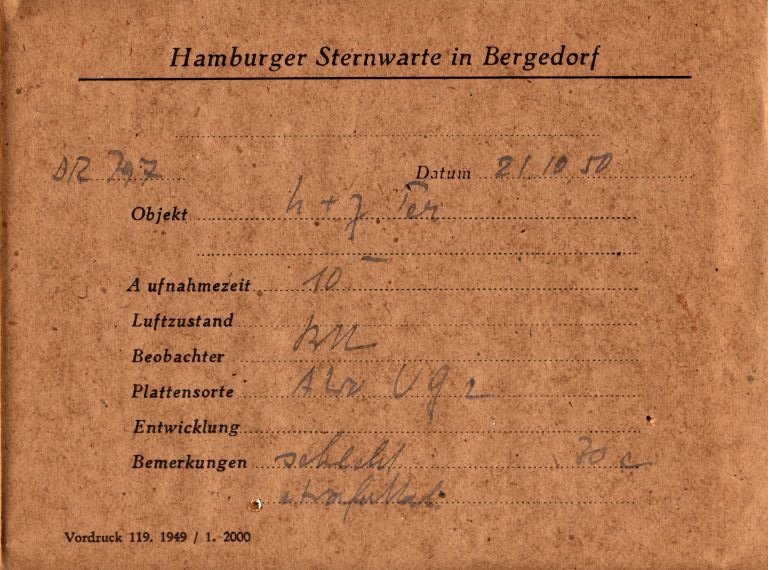 Hamburger Sternwarte in Bergedorf
DR 797 Datum 21.10.50
Objekt h + χ Per
Aufnahmezeit 10
Luftzustand
Beobachter
Plattensorte UG 2
Entwicklung
Bemerkungen schlecht
Vordruck 119. 1949 / 1. 2000